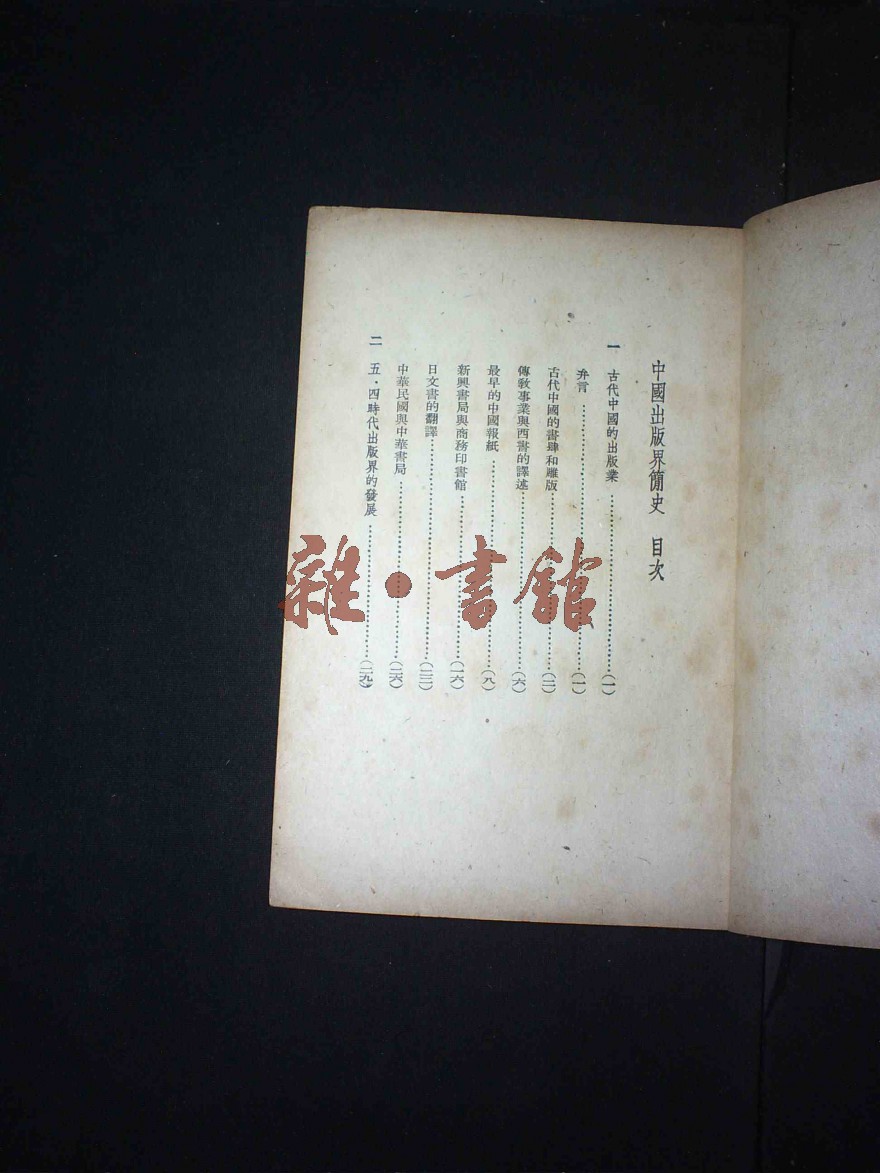 中國出版界簡史　目次
一　古代中國的出版業…………(一)
弁言…………(一)
古代中國的書肆和雕版…………(二)
傳敎事業與西書的譯述…………(六)
最早的中國報紙…………(八)
新興書局與商務印書館…………(一六)
日文書的翻譯…………(二三)
中華民國與中華書局…………(二六)
二　五・四時代出版界的發展…………(二九)
雜・書館